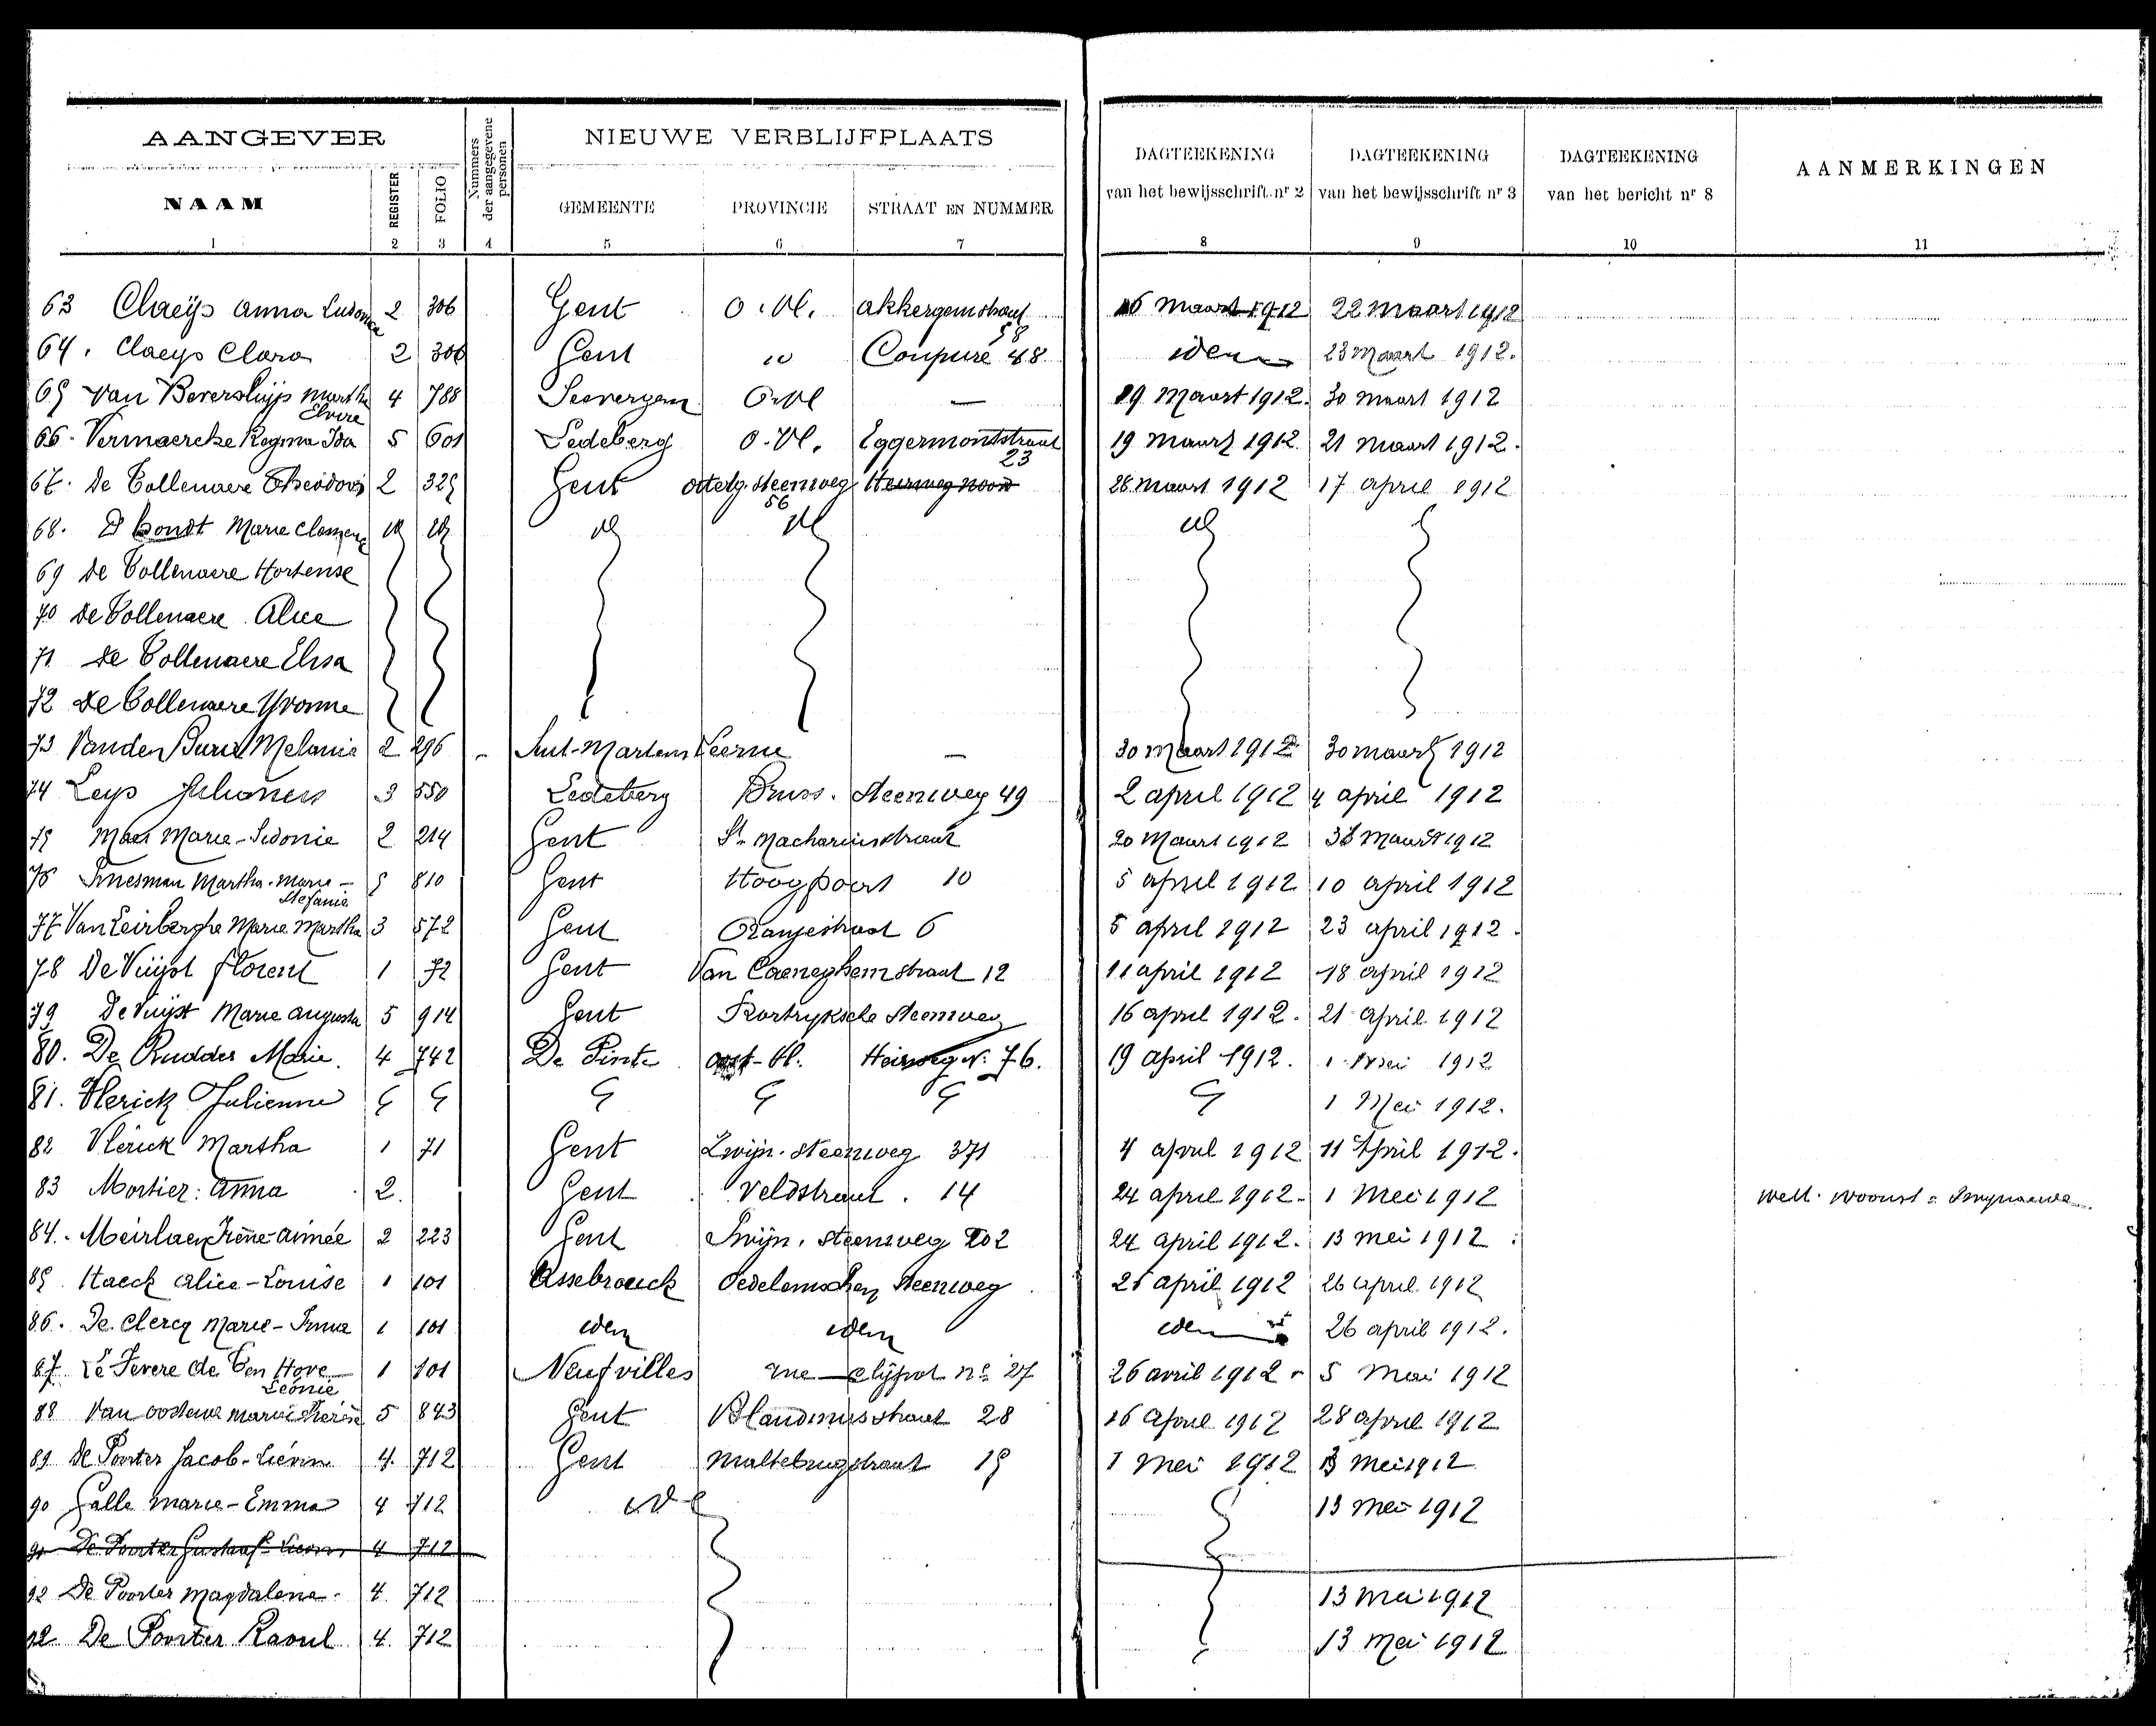 AANGEVER
NIEUWE VERBLIJFPLAATS
NAAM REGISTER FOLIO Nummers der aangegevene personen GEMEENTE PROVINCIE STRAAT EN NUMMER
DAGTEEKENING van het bewijsschrift nr 2
DAGTEEKENING van het bewijsschrift nr 3
DAGTEEKENING van het bericht nr 8
AANMERKINGEN
1 2 3 4 5 6 7 8 9 10 11
63 Claeÿs Anna 2 306 Gent O.Vl. Akkergemstraat 58 16 Maart 1912 22 maart 1912
64. Claeys Clara 2 306 Gent id Coupure 48 idem 23 Maart 1912.
65 Van Beversluijs Martha Elvire 4 788 Seevergem O-Vl — 19 Maart 1912. 30 maart 1912
66. Vermaercke Regina Ida 5 601 Ledeberg O.Vl. Eggermontstraat 23 19 maart 1912. 21 maart 1912.
67. De Tollenaere Theodoor 2 325 Gent steenweg 56 Heirweg noord 28 maart 1912 17 april 1912
68. D hondt Marie id id id id id
69 De Tollenaere Hortense
70 De Tollenaere Alice
71 De Tollenaere Elisa
72 De Tollenaere Yvonne
73 Vanden Melanie 2 296 - Sint-Martens Leerne — 30 maart 1912 30 maart 1912
74 Leys 3 550 Ledeberg Bruss. Steenweg 49 2 april 1912 4 april 1912
75 Maes Marie-Sidonie 2 214 Gent St. Machariusstraat 20 Maart 1912 Maart 1912
76 Martha-Marie-Stefanie 5 810 Gent Hoogpoort 10 5 april 1912 10 april 1912
77 Van Leirberghe Marie Martha 3 572 Gent Oranjestraat 6 5 april 1912 23 april 1912.
78 De Vuijst Florent 1 72 Gent Van Caeneghemstraat 12 11 april 1912 18 april 1912
79 De Vuijst Marie Augusta 5 914 Gent Kortryksche Steenweg 16 april 1912. 21 april 1912
80. De Rudder Marie. 4 742 De Pinte Oost-Vl. Heirweg Nr. 76. 19 april 1912. 1 Mei 1912
81. Vlerick Julienne 1 Mei 1912.
82 Vlerick Martha 1 71 Gent Zwijn. Steenweg 371 4 april 1912 11 April 1912.
83 Mortier Anna 2. Gent Veldstraat. 14 24 april 1912. 1 Mei 1912 Wett. woonst
84. Meirlaen Irène-Aimée 2 223 Gent Zwijn. Steenweg 202 24 april 1912. 13 mei 1912
85 Haeck Alice-Louise 1 101 Assebrouck Oedelemschen Steenweg 25 april 1912 26 april 1912
86. De Clercq Marie-Irma 1 101 idem idem idem 26 april 1912.
87 Le Fevere de Ten Hove Léonie 1 101 Neufvilles rue no 27 26 avril 1912 5 Mai 1912
88 Van Marie Therèse 5 843 Gent Blandinusstraat 28 16 April 1912 28 april 1912
89 De Poorter Jacob-Liévin 4. 712 Gent Maltebrugstraat 15 1 mei 1912 13 Mei 1912
90 Galle Marie-Emma 4 712 id 13 mei 1912
91 De Poorter Gustaf 4 712
92 De Poorter Magdalena 4. 712 13 Mei 1912
92 De Poorter Raoul 4. 712 13 Mei 1912